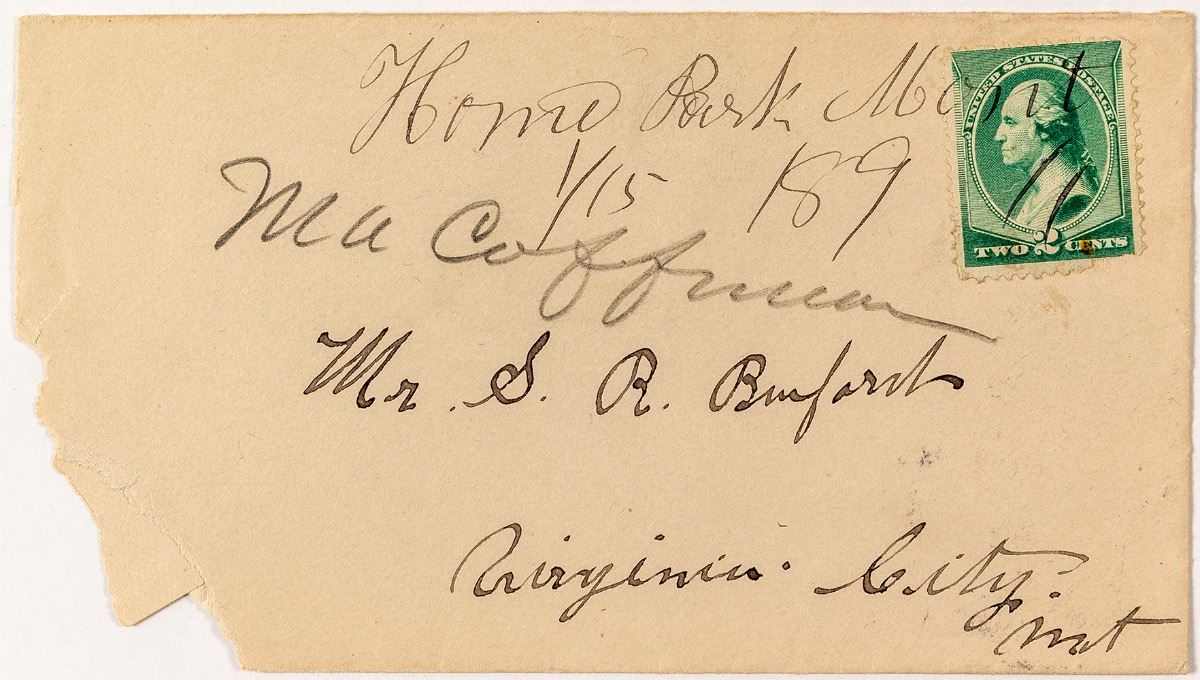 Home Park Mont
1/15 189
UNITED STATES POSTAGE
TWO 2 CENTS
M A Coffman
Mr. S. R. Buford
Virginia City
Mt